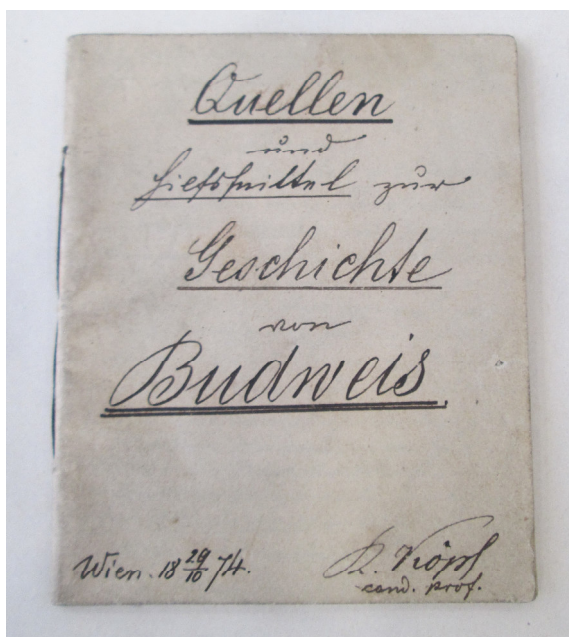 Quellen
und
Hilfsmittel zur
Geschichte
von
Budweis.
Wien. 18 29/10 74.
K. Köpl
cand. prof.